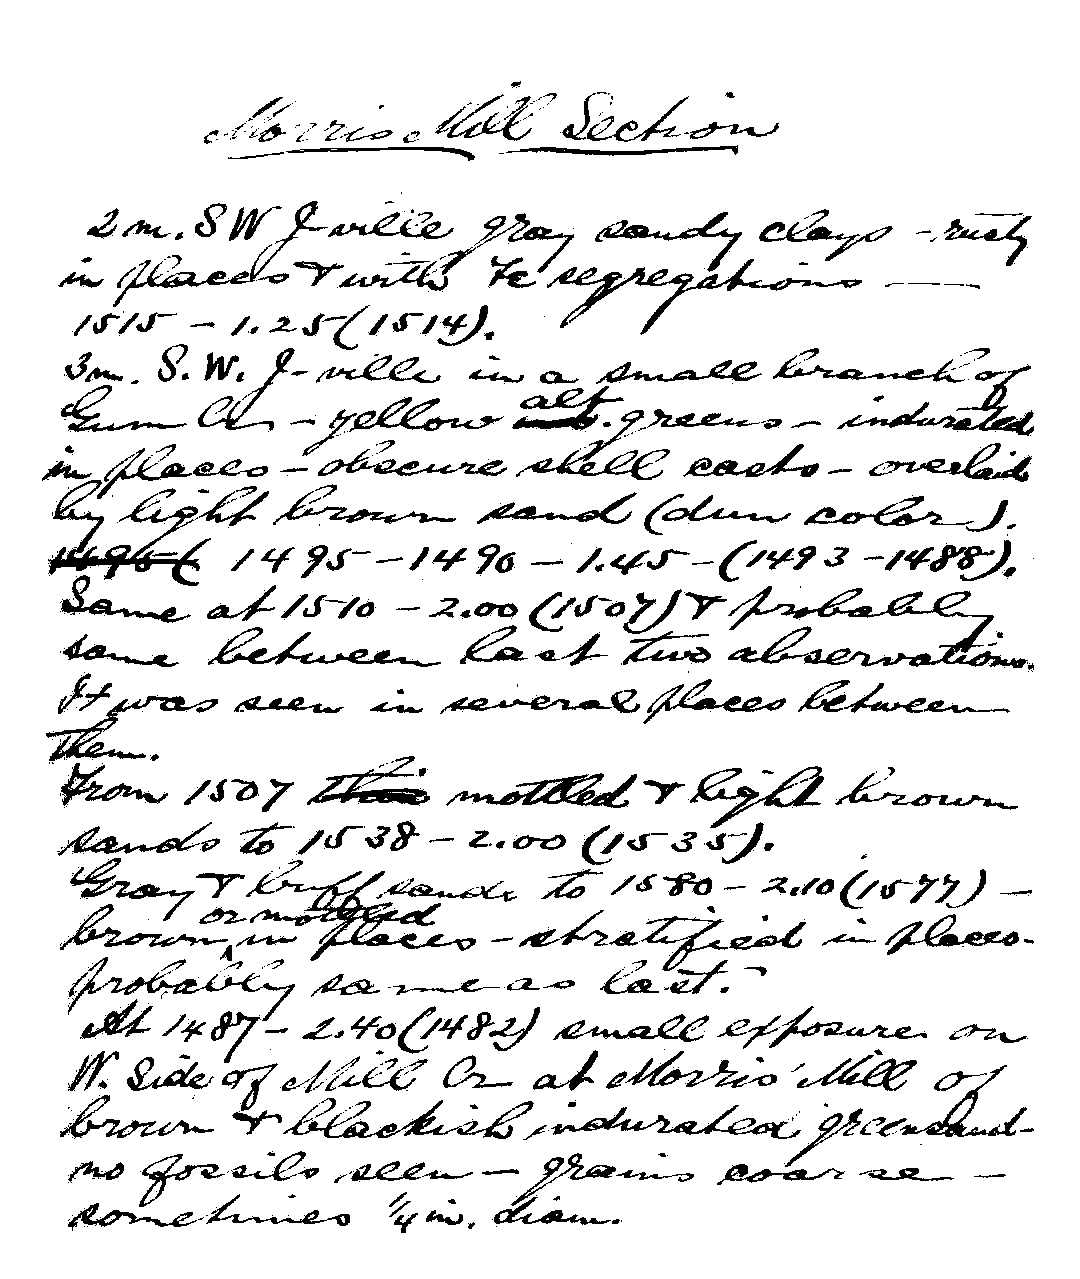 Morris Mill Section
2 m. SW J-ville gray sandy clays - rusty
in places & with Fe segregations —
1515 - 1.25 (1514).
3m. S.W. J-ville in a small branch of
Gum Cr - yellow alt. greens - indurated
in places - obscure shell casts - overlaid
by light brown sand (dun color).
1495( 1495 - 1490 - 1.45 - (1493 - 1488).
Same at 1510 - 2.00 (1507) & probably
same between last two observations.
It was seen in several places between
them.
From 1507 this mottled & light brown
sands to 1538 - 2.00 (1535).
Gray & buff sands to 1580 - 2.10 (1577) -
brown or mottled in places - stratified in places -
probably same as last.
At 1487 - 2.40 (1482) small exposure on
W. Side of Mill Cr at Morris' Mill of
brown & blackish indurated greensand -
no fossils seen - grains coarse -
sometimes 1/4 in. diam.